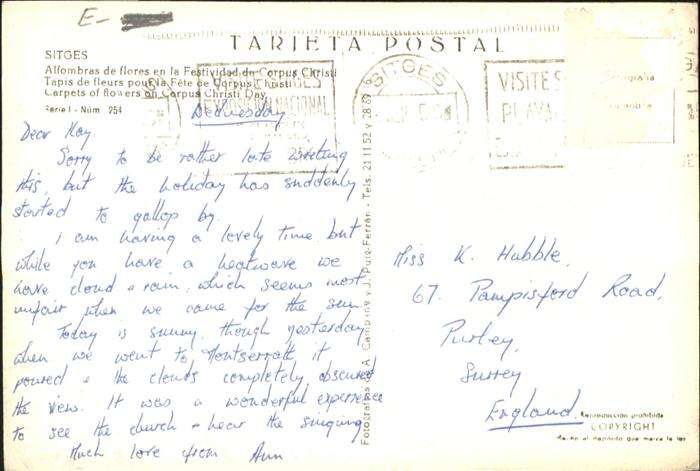 E-
TARJETA POSTAL
SITGES
Alfombras de flores en la Festividad de Corpus Christi
Tapis de fleurs pour la Fête de Corpus Christi
Carpets of flowers on Corpus Christi Day
Serie I - Núm. 254
SITGES
VISITE S
PLAYA
NACIONAL
Wednesday
Dear Kay,
Sorry to be rather late writing
this, but the holiday has suddenly
started to gallop by.
I am having a lovely time but
while you have a heatwave we
have cloud + rain, which seems most
unfair when we came for the sun.
Today is sunny, though yesterday
when we went to Montserratt it
poured + the clouds completely obscured
the view. It was a wonderful experience
to see the church + hear the singing.
Much love from Ann
Fotografías de A. Campañá y J. Puig-Ferrán - Tels. 21 11 52 y 28 69
Miss K. Hubble,
67, Pampisford Road,
Purley,
Surrey
England.
Reproducción prohibida
COPYRIGHT
el depósito que marca la ley